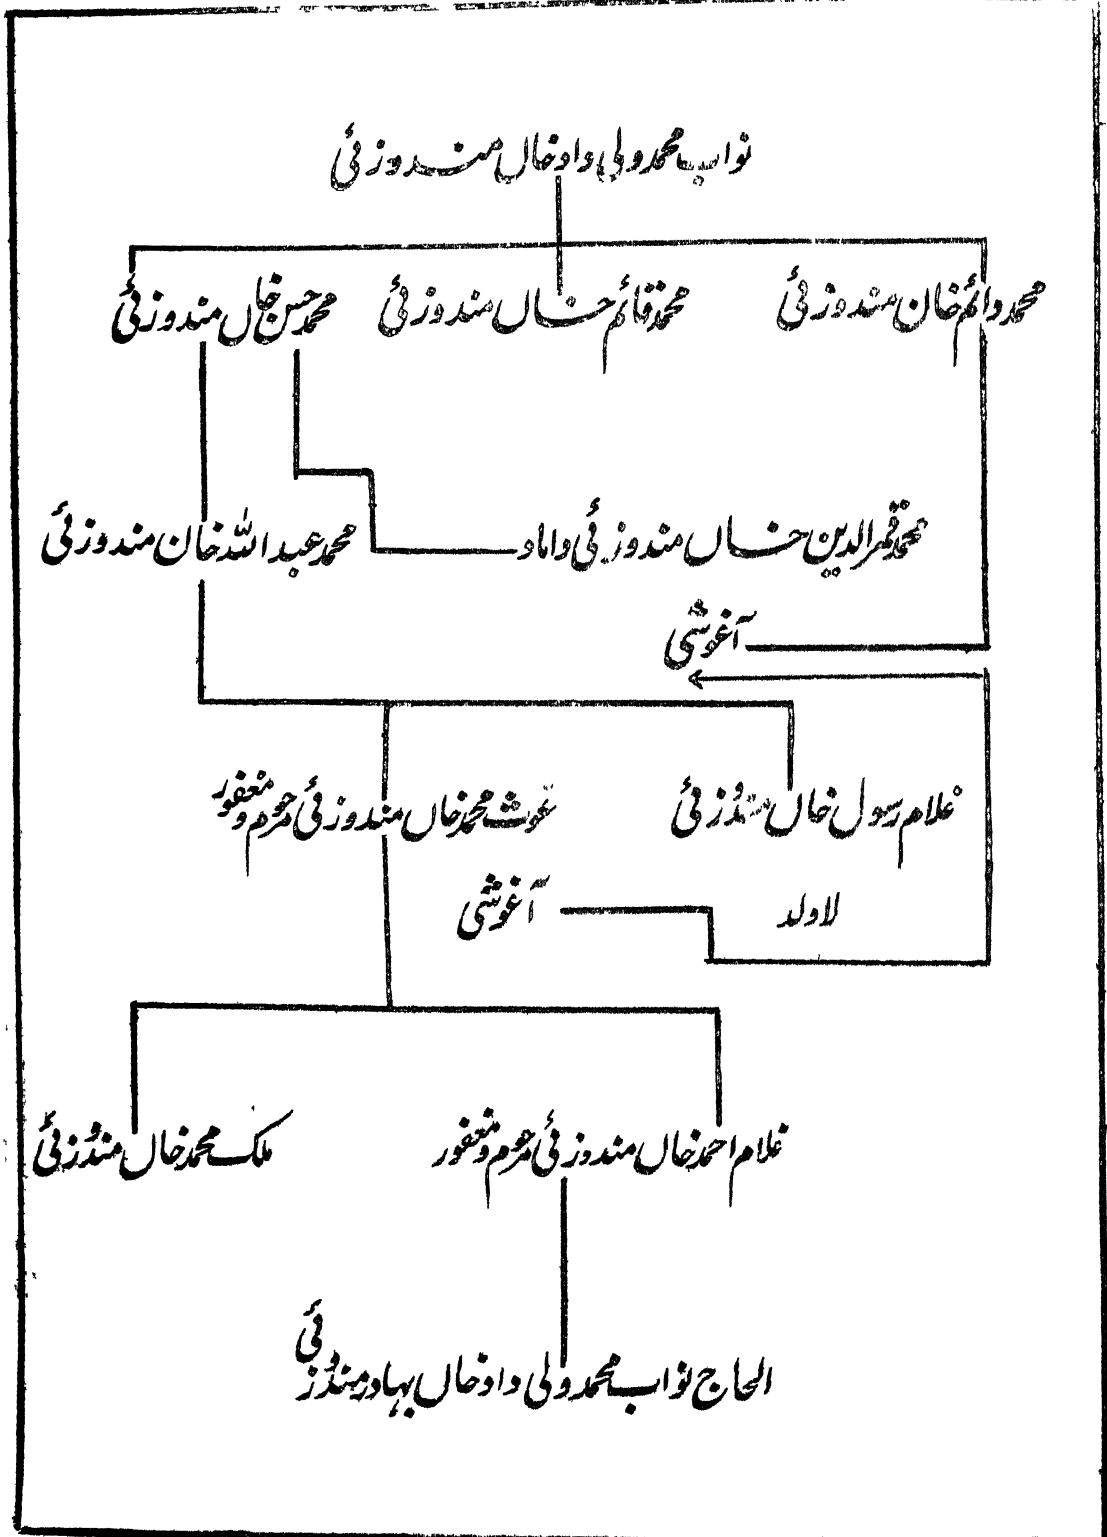 نواب محمد ولی داد خاں مندوزئی
محمد دائم خان مندوزئی
محمد قائم خاں مندوزئی
محمد حسن خاں مندوزئی
محمد قمر الدین خاں مندوزئی داماد
محمد عبد اللہ خان مندوزئی
آغوشی
غلام رسول خاں مندوزئی
غوث محمد خاں مندوزئی مرحوم و مغفور
لاولد
آغوشی
غلام احمد خاں مندوزئی مرحوم و مغفور
ملک محمد خاں مندوزئی
الحاج نواب محمد ولی داد خاں بہادر مندوزئی